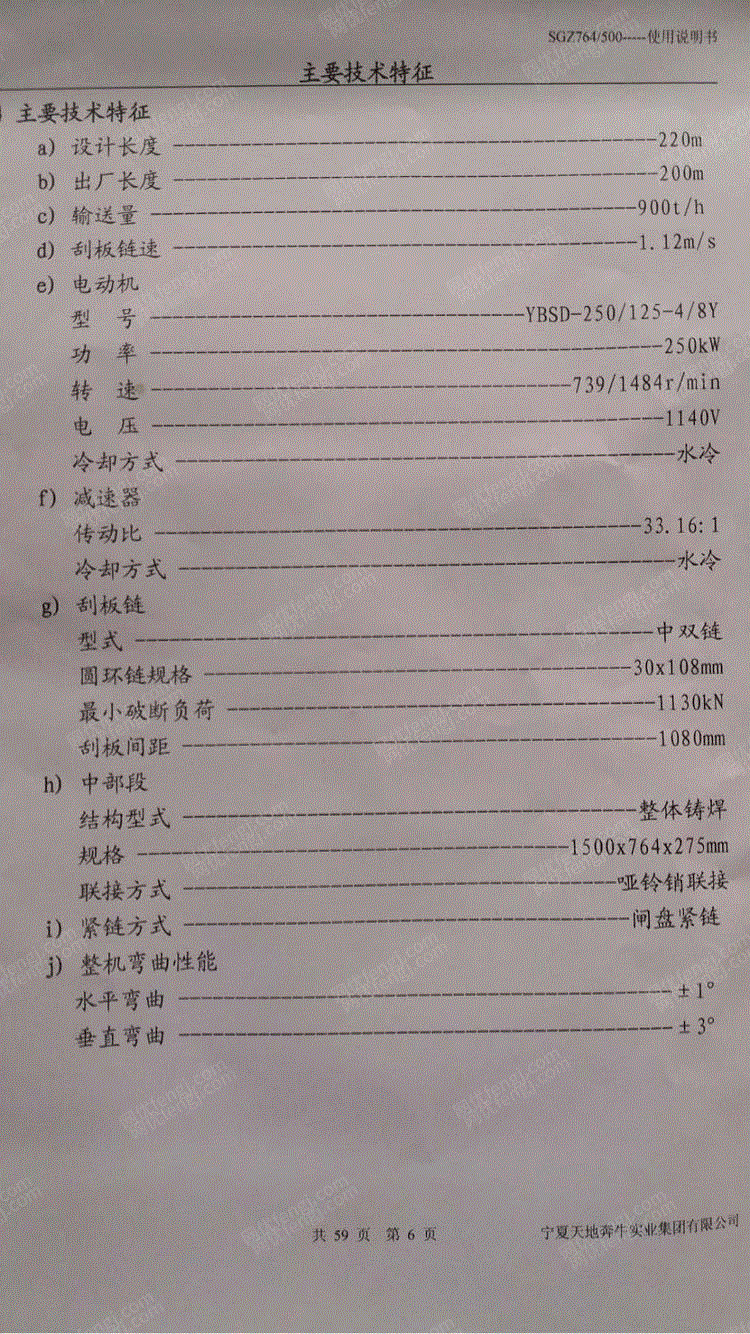 SGZ764/500-----使用说明书
主要技术特征
主要技术特征
a) 设计长度 --------------------------------------------220m
b) 出厂长度 --------------------------------------------200m
c) 输送量 --------------------------------------------900t/h
d) 刮板链速 ------------------------------------------1.12m/s
e) 电动机
型 号 ----------------------------------YBSD-250/125-4/8Y
功 率 ----------------------------------------------250kW
转 速 --------------------------------------739/1484r/min
电 压 ----------------------------------------------1140V
冷却方式 ---------------------------------------------水冷
f) 减速器
传动比 --------------------------------------------33.16:1
冷却方式 ---------------------------------------------水冷
g) 刮板链
型式 -----------------------------------------------中双链
圆环链规格 ---------------------------------------30x108mm
最小破断负荷 ---------------------------------------1130kN
刮板间距 -------------------------------------------1080mm
h) 中部段
结构型式 -----------------------------------------整体铸焊
规格 ---------------------------------------1500x764x275mm
联接方式 ---------------------------------------哑铃销联接
i) 紧链方式 -----------------------------------------闸盘紧链
j) 整机弯曲性能
水平弯曲 ---------------------------------------------±1°
垂直弯曲 ---------------------------------------------±3°
共 59 页 第 6 页 宁夏天地奔牛实业集团有限公司